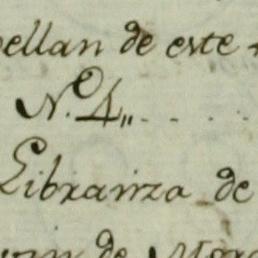 ellan de este
N.º 4,,....
Libranza de
de